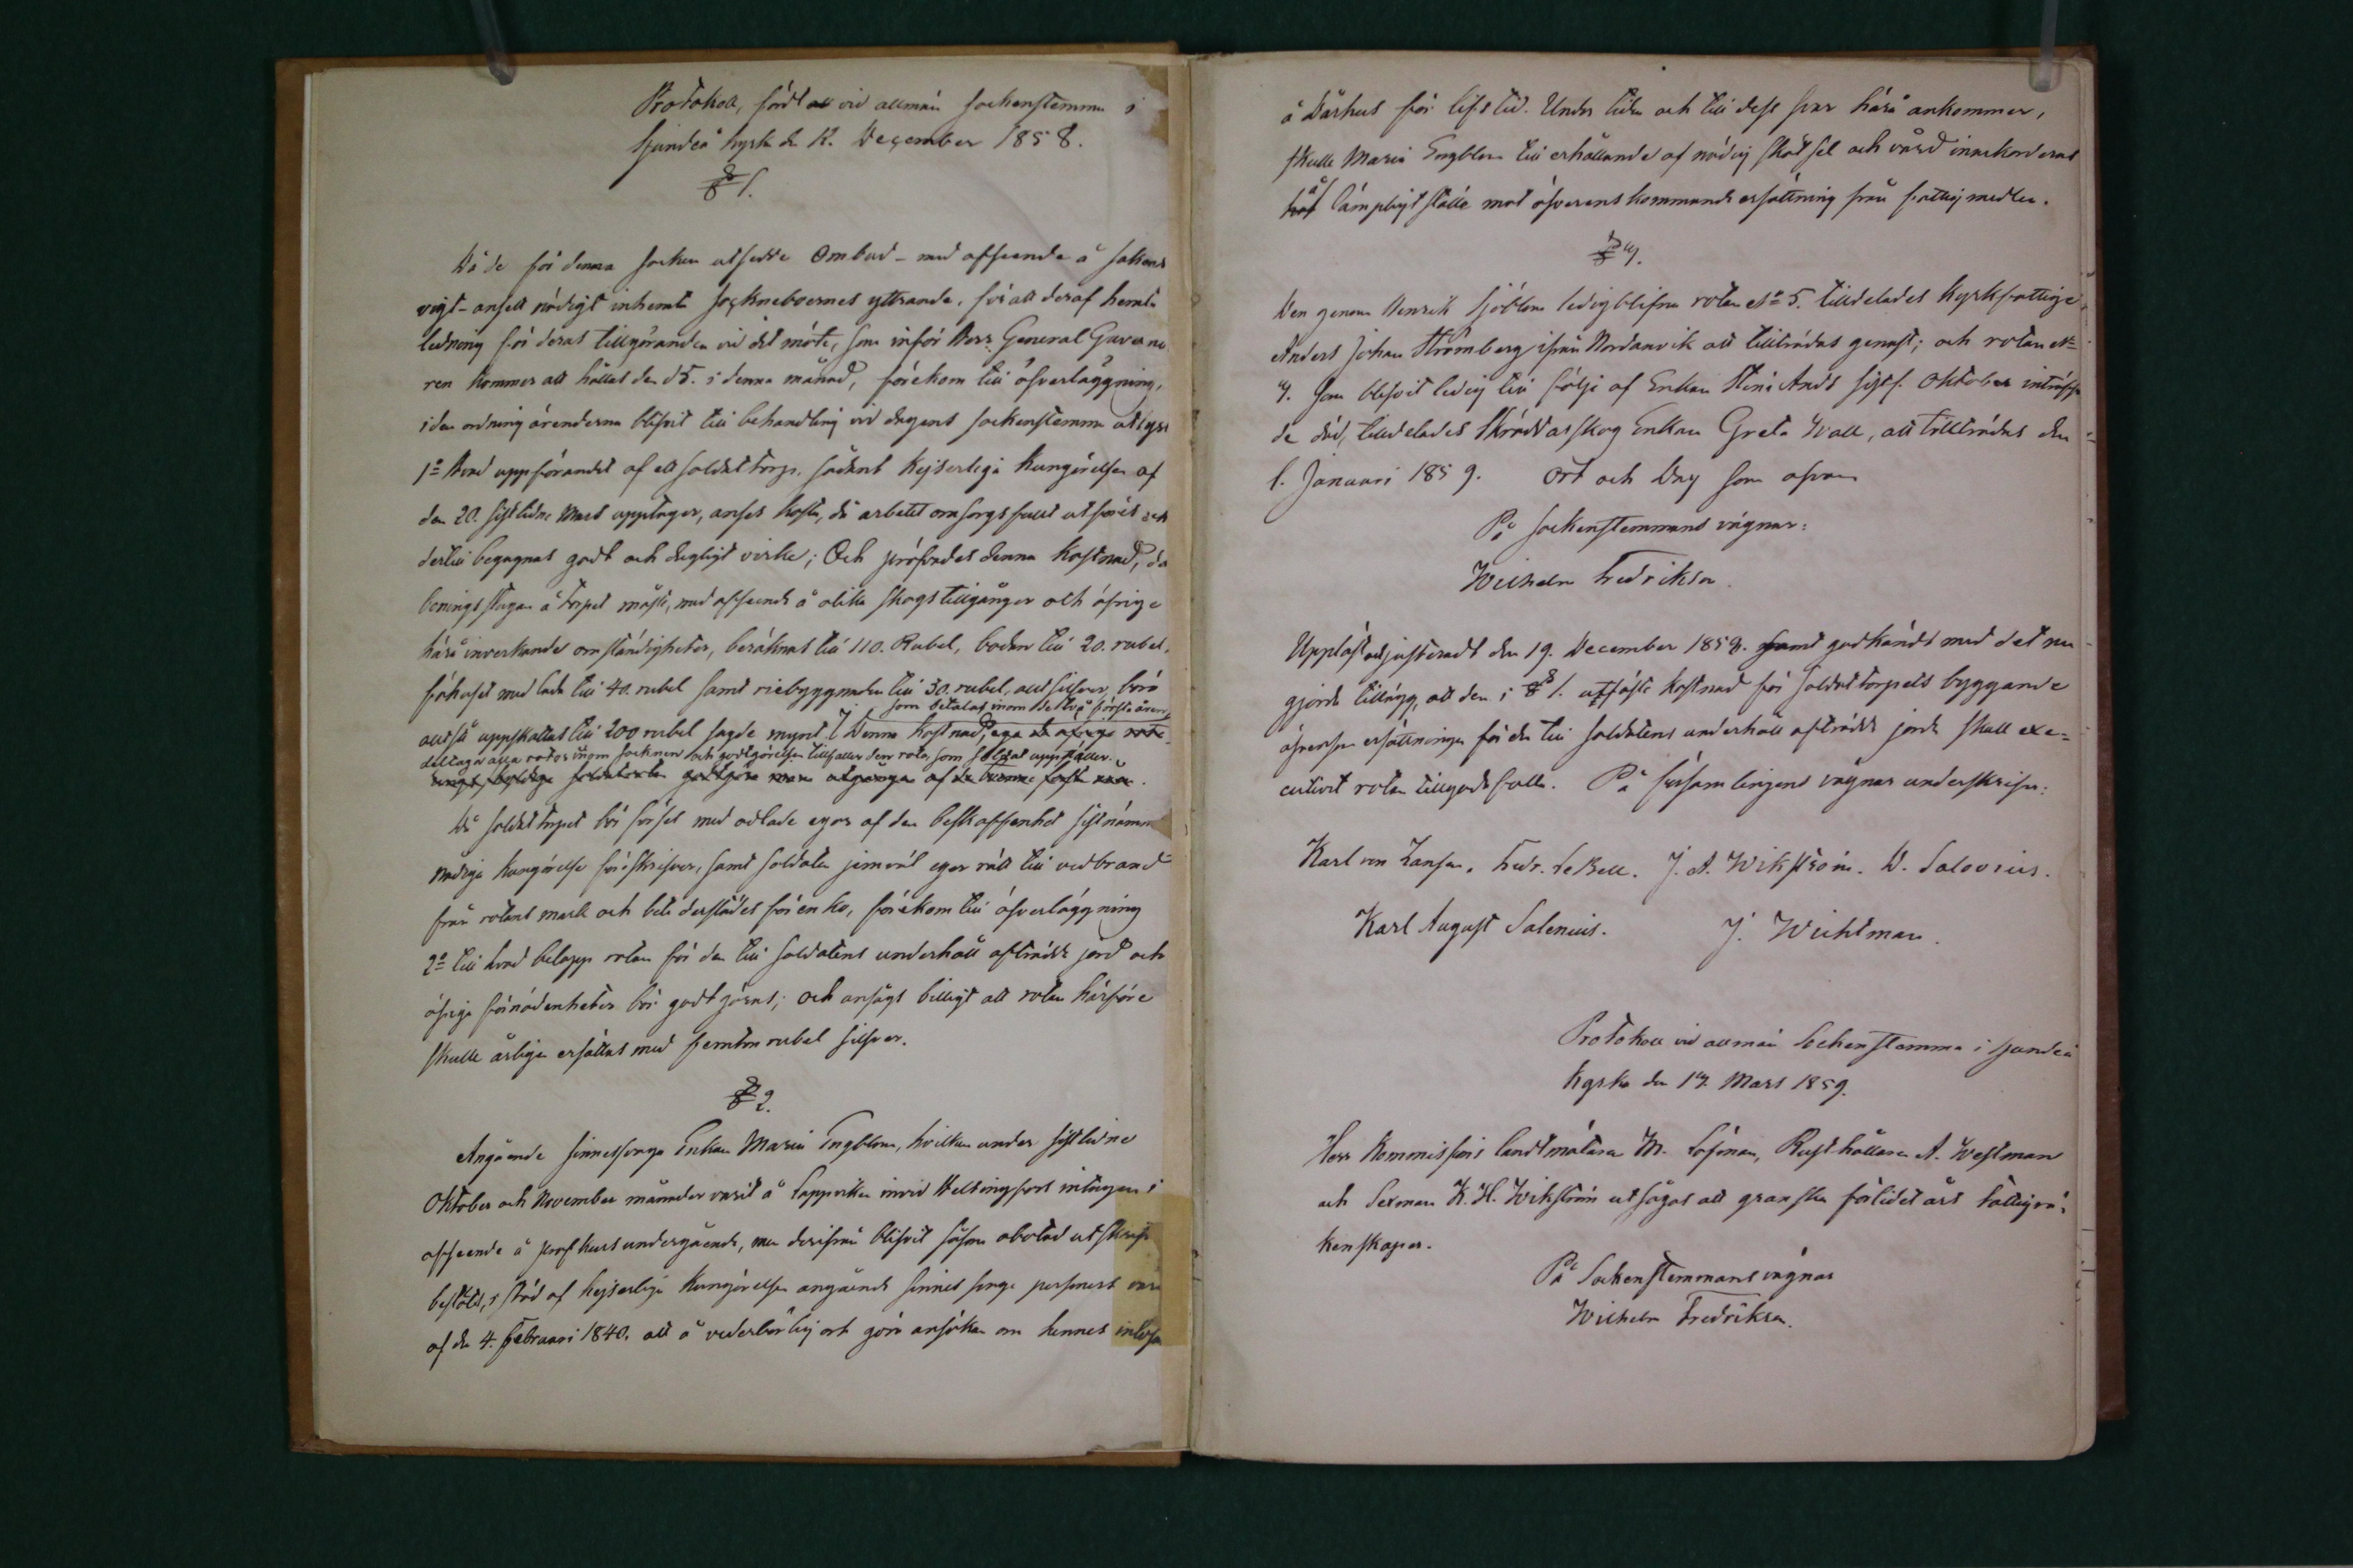 Protokoll, fördt vid allmän sockenstemma i
Sjundeå kyrka d. 12. December 1858.
§ 1.
Då de för denna socken utsedde Ombud - med afseende å sakens
vigt - ansett nödigt inhemta Sockneboernes yttrande, för att deraf hemta
ledning för deras tillgöranden vid det möte, som inför Herr General Guverneu
ren kommer att hållas den 15. i denna månad, förekom till öfverläggning,
i den ordning ärenderna blifvit till behandling vid dagens sockenstemma utlyst
1o hvad uppförandet af ett soldattorp, sådant Kejserliga Kungörelsen af
den 20. sistlidne Mars upptager, anses kosta, då arbetet omsorgsfullt utföres och
dertill begagnas godt och dugligt virke; Och pröfvades denna kostnad, då
boningsstugan å torpet måste, med afseende å olika skogstillgångar och öfrige
härå inverkande omständigheter, beräknas till 110. Rubel, boden till 20. rubel,
fähuset med lada till 40. rubel samt riebyggnaden till 30. rubel, allt silfver, böra
som betalas inom de två första åren,
alltså uppskattas till 200 rubel sagde mynt. Denna kostnad, ega de öfrige rote-
deltaga alla rotor inom socknen och godtgörelsen tillfaller den rota, som soldat uppställer.
godtgöra inom utgången af de tvenne första åren.
Då soldattorpet bör förses med odlade egor af den beskaffenhet sistnämn
nådiga kungörelse föreskrifver, samt soldaten jemväl eger rätt till vedbrand
från rotens mark och bete derstädes för en ko, förekom till öfverläggning
2o till hvad belopp rotan för den till soldatens underhåll afträdde jord och
öfriga förnödenheter bör godtgöras; och ansågs billigt att rotan härföre
skulle årligen ersättas med femton rubel silfver.
§ 2.
Angående sinnessvaga Enkan Maria Engblom, hvilken under sistlidne
Oktober och November månader varit å Lappviken invid Helsingfors intagen i
afseende å profkurs undergående, men derifrån blifvit såsom obotad utskrif
beslöts, i stöd af Kejserliga Kungörelsen angående sinnessvaga personers vård
af den 4. Februari 1840. att å vederbörlig ort göra ansökan om hennes intagn
å Dårhus för lifstid. Under tiden och till dess svar härå ankommer,
skulle Maria Engblom till erhållande af nödig skötsel och vård inackorderas
å lämpligt ställe mot öfverenskommande ersättning från fattigmedlen.
§ 4.
Den genom Henrik Sjöblom ledigblifna rotan No 5. tilldelades Kyrkfattige
Anders Johan Strömberg ifrån Nordanvik att tillträdas genast; och rotan No
4. som blifvit ledig till följe af Enkan Stina Ands sistl. Oktober inträffa
de död, tilldelades Skräddarskog Enkan Greta Wall, att tillträdas den
1. Januari 1859. Ort och Dag som ofvan
På sockenstemmans vägnar:
Wilhelm Fredriksson.
Uppläst och justeradt den 19. December 1858. samt godkändt med det nu
gjorda tillägg, att den i § 1. utfäste kostnad för soldattorpets byggande
äfvensom ersättningen för den till soldatens underhåll afträdde jorde skall exe-
cutivt rotan tillgodofalla. På församlingens vägnar underskrifva:
Karl von Zansen. Fredr. LeBell. J. A. Wikström. W. Salovius.
Karl August Salenius. J. Wichtman.
Protokoll vid allmän Sockenstemma i Sjundeå
Kyrka den 14. Mars 1859.
Herr Kommissions landtmätaren M. Löfman, Rusthållaren A. Westman
och Sexman K. H. Wikström utsågos att granska förlidet års fattigrä-
kenskaper.
På Sockenstemmans vägnar
Wilhelm Fredriksson.